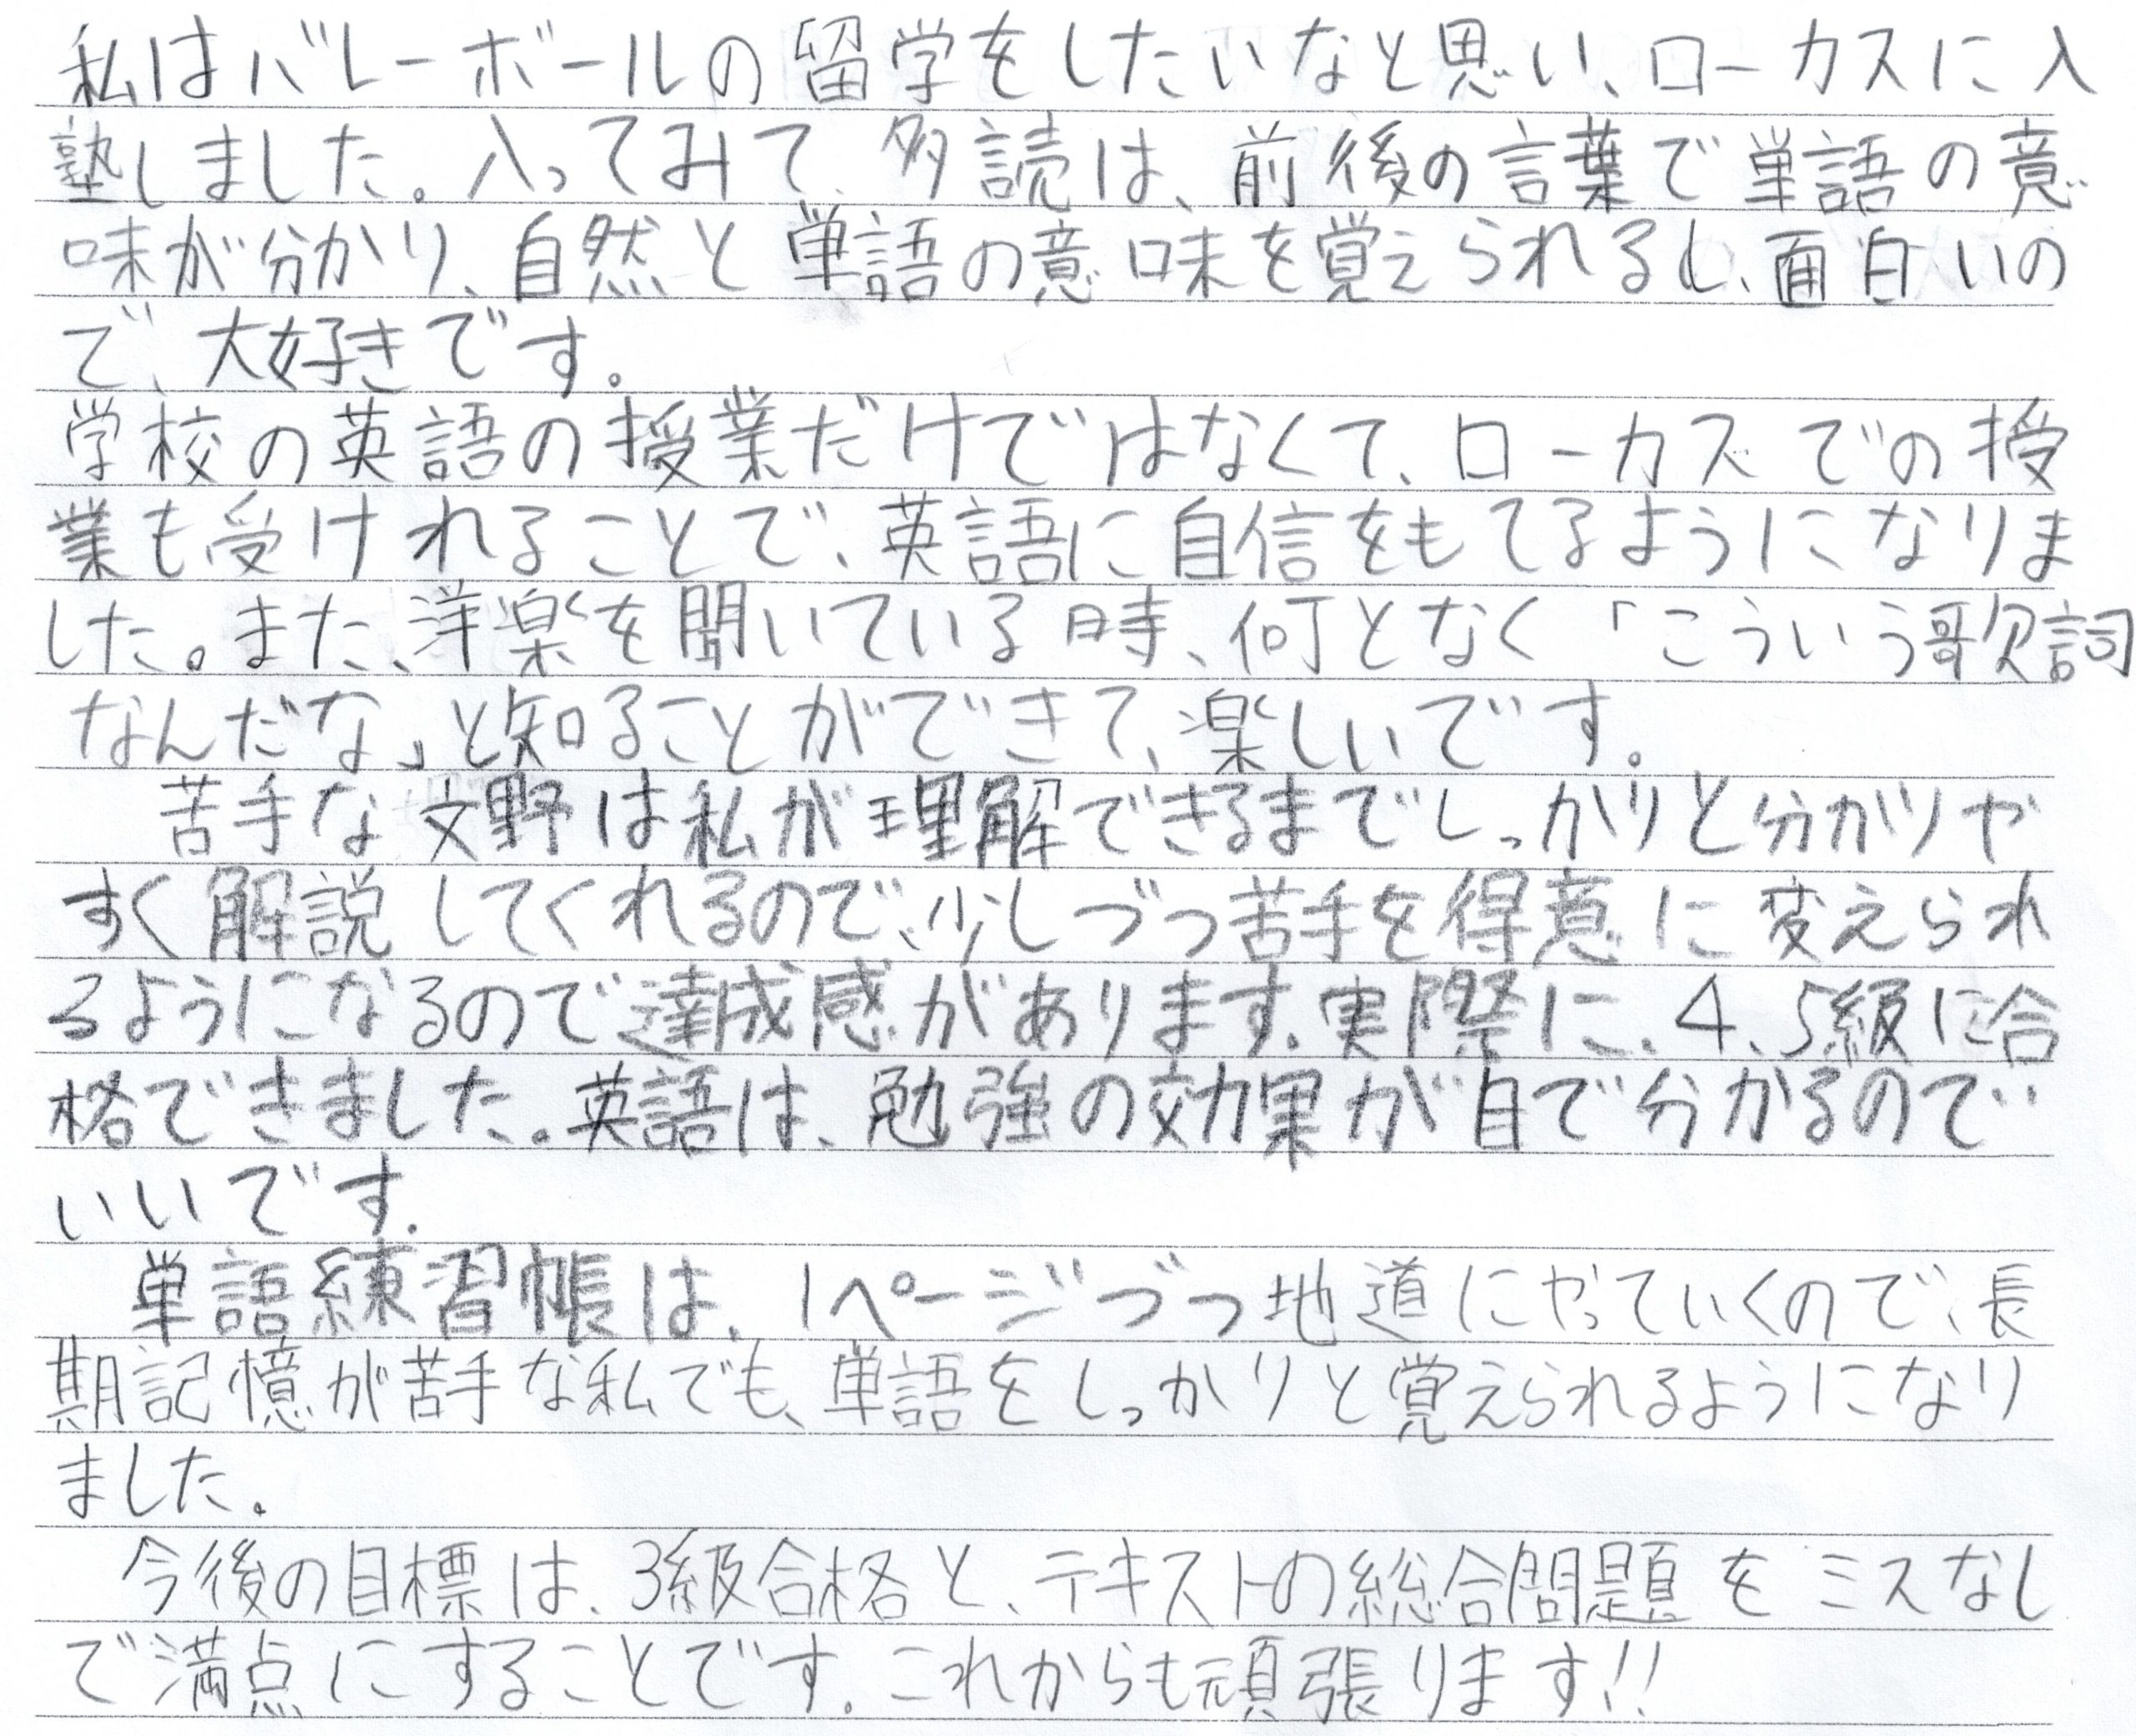 私はバレーボールの留学をしたいなと思い、ローカスに入
塾しました。入ってみて、多読は、前後の言葉で単語の意
味が分かり、自然と単語の意味を覚えられるし、面白いの
で、大好きです。
学校の英語の授業だけではなくて、ローカズでの授
業も受けれることで、英語に自信をもてるようになりま
した。また、洋楽を聞いている時、何となく「こういう歌詞
なんだな」と知ることができて、楽しいです。
苦手な文野は私が理解できるまでしっかりと分かりや
すく解説してくれるので、少しづつ苦手を得意に変えられ
るようになるので達成感があります。実際に、4、5級に合
格できました。英語は、勉強の効果が目で分かるので
いいです。
単語練習帳は、1ページづつ地道にやっていくので、長
期記憶が苦手な私でも、単語をしっかりと覚えられるようになり
ました。
今後の目標は、3級合格と、テキストの総合問題をミスなし
で満点にすることです。これからも頑張ります!!